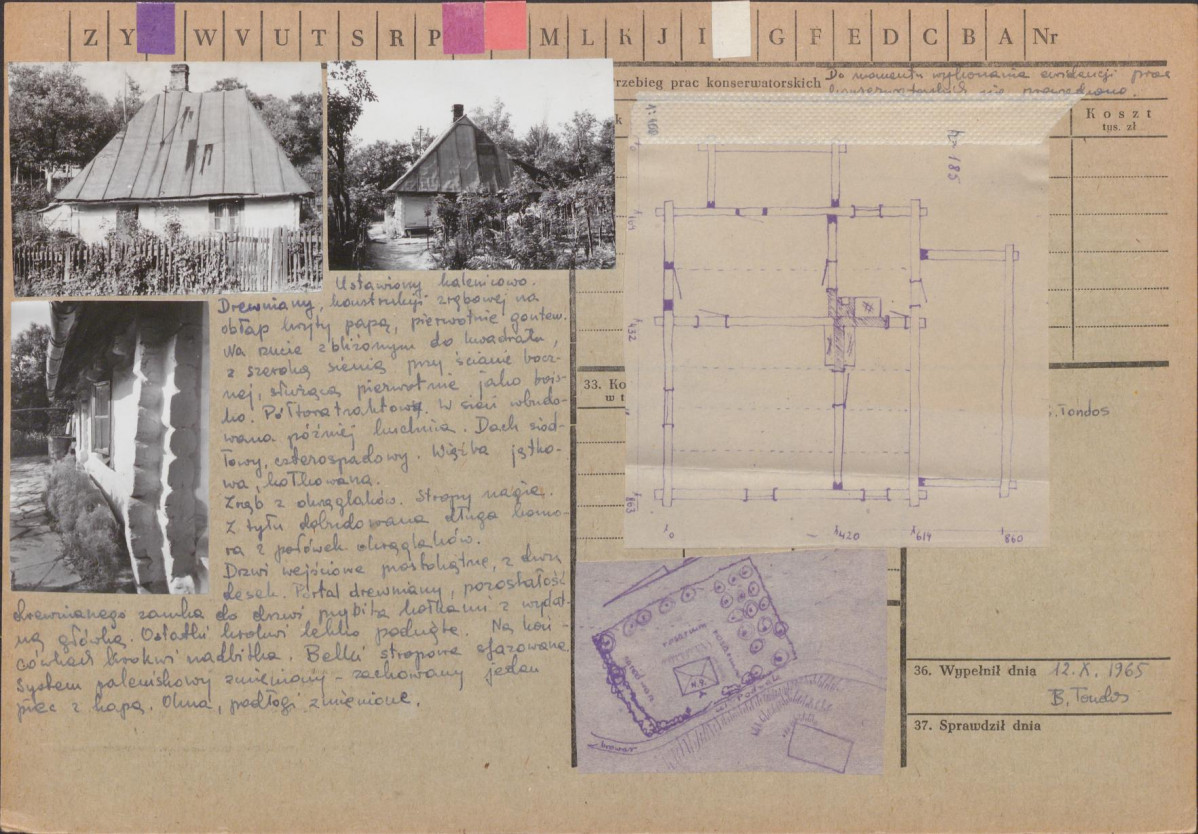 Z Y W V U T S R P M L K J I G F E D C B A Nr
rzebieg prac konserwatorskich Do momentu wykonania ewidencji prac
konserwatorskich nie prowadzono.
Koszt
tys. zł
k
1:100
hz 185
Ustawiony kalenicowo.
Drewniany, konstrukcji zrębowej na
obłap kryty papą, pierwotnie gontem.
Na rzucie zbliżonym do kwadratu,
z szeroką sienią przy ścianie bocz-
nej, służącą pierwotnie jako bois-
ko. Półtoratraktowy. W sieni wbudo-
wana później kuchnia. Dach siod-
łowy, czterospadowy. Więźba jętko-
wa, kołkowana.
Zrąb z okrąglaków. Stropy nagie.
Z tyłu dobudowana długa komo-
ra z połówek okrąglaków.
Drzwi wejściowe prostokątne, z dwu
desek. Portal drewniany, pozostałość
drewnianego zamka do drzwi przybita kołkami z wydat-
ną główką. Ostatki krokwi lekko podcięte. Na koń-
cówkach krokwi nadbitka. Belki stropowe sfazowane
System paleniskowy zmieniony - zachowany jeden
piec z kapą. Okna, podłogi zmienione.
33. Ko
w t
432
863
0
420
614
860
. Tondos
N.R.
ul. Podgórki
36. Wypełnił dnia 12.X.1965
B. Tondos
37. Sprawdził dnia